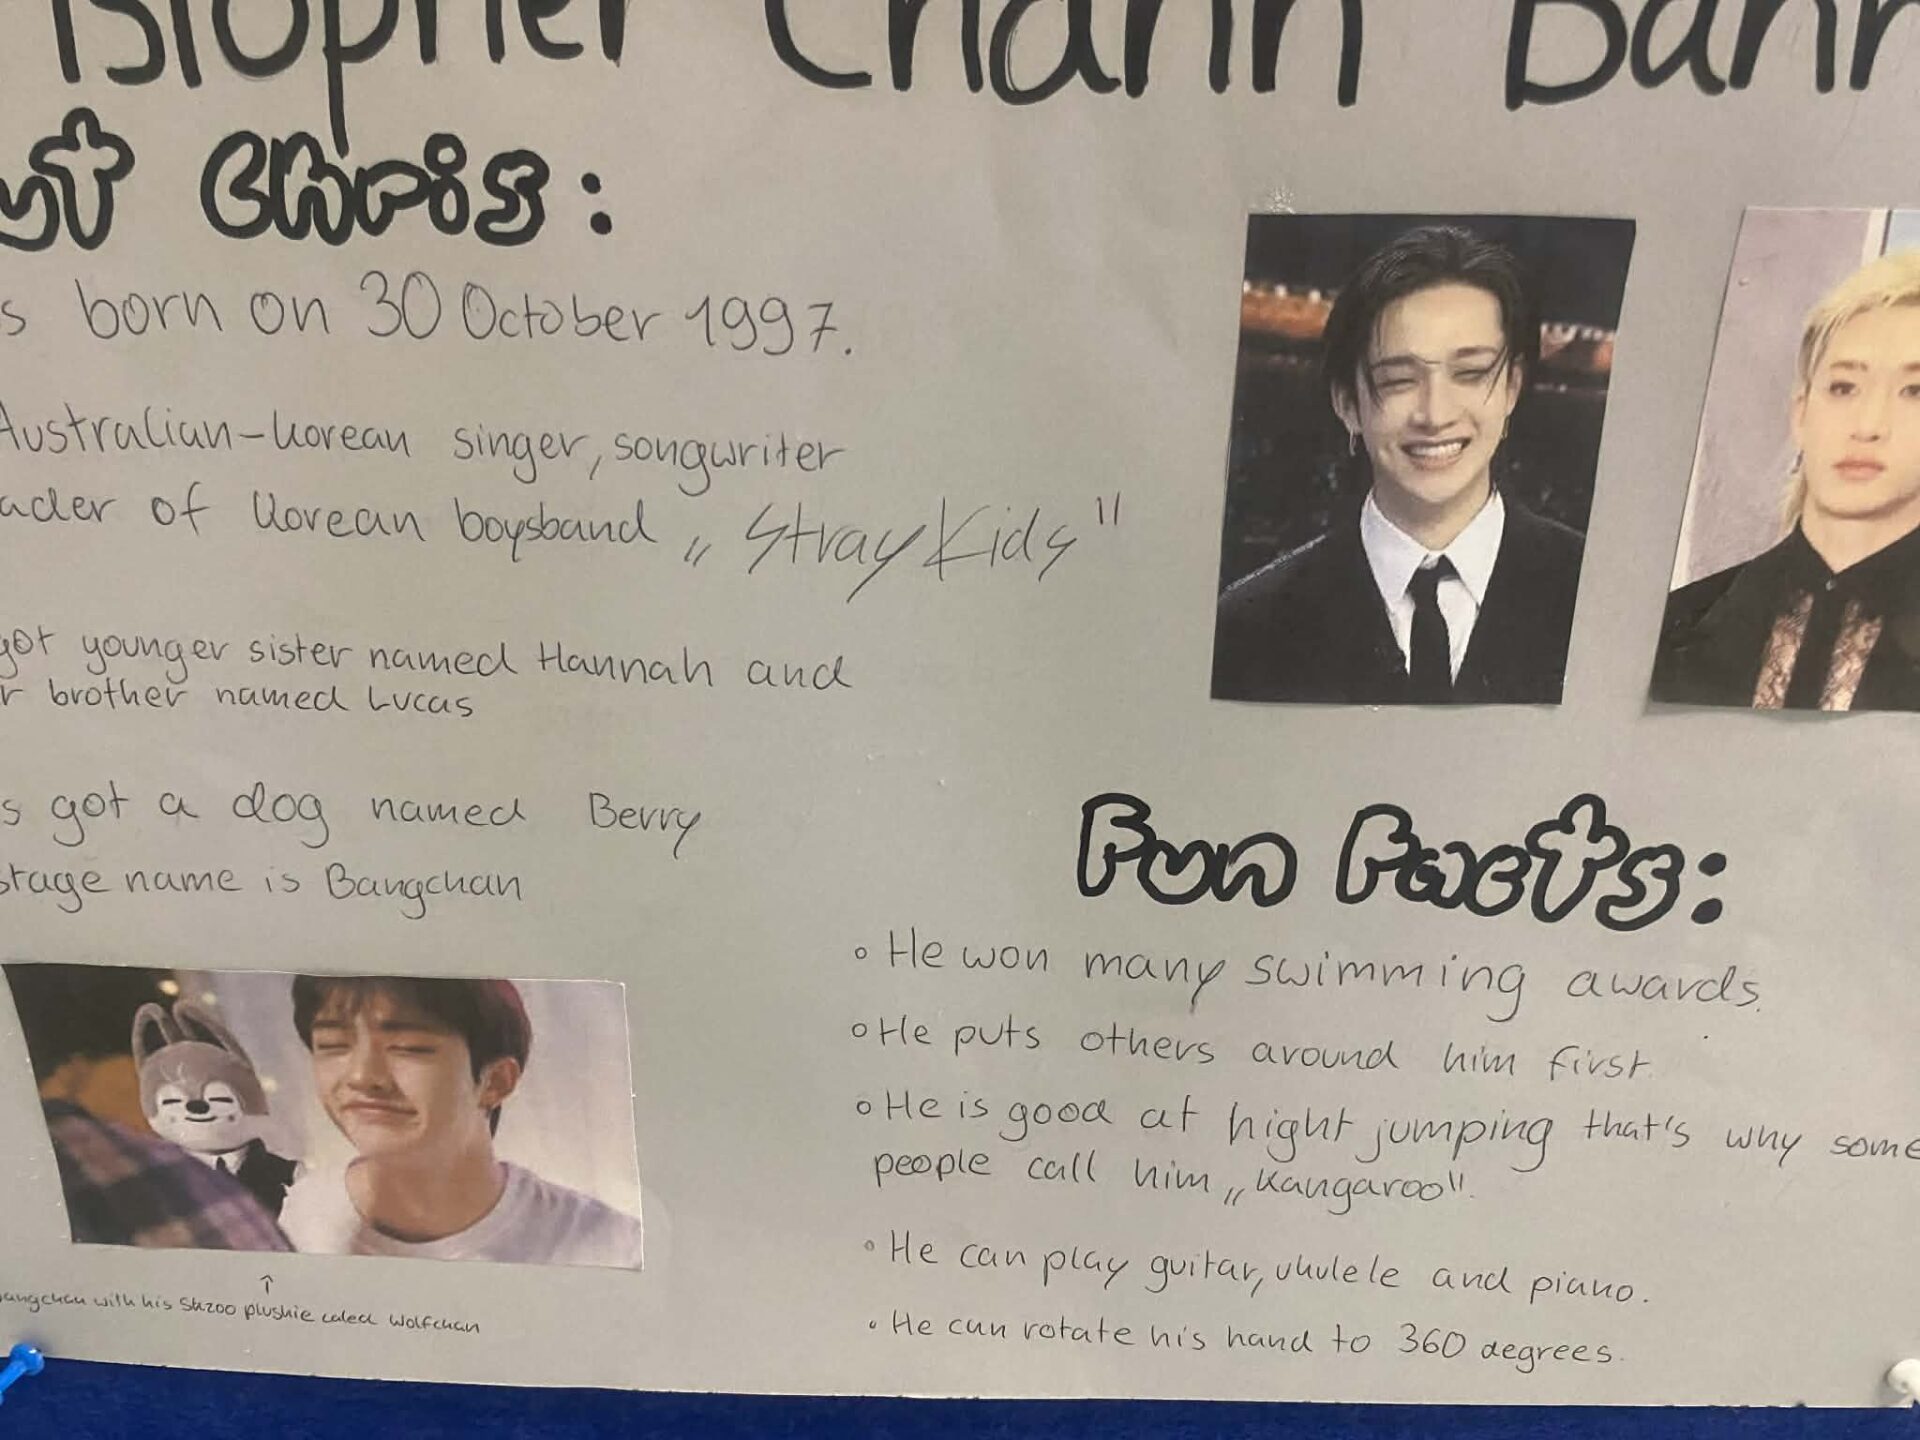 istopher Chann Bann
ut Chris:
s born on 30 October 1997.
Australian-korean singer, songwriter
ader of Korean boysband „Stray Kids"
got younger sister named Hannah and
r brother named Lucas
s got a dog named Berry
stage name is Bangchan
Bangchan with his Skzoo plushie caled Wolfchan
Fun Facts:
• He won many swimming awards.
• He puts others around him first.
• He is good at hight jumping that's why some
people call him „Kangaroo".
• He can play guitar, ukulele and piano.
• He can rotate his hand to 360 degrees.